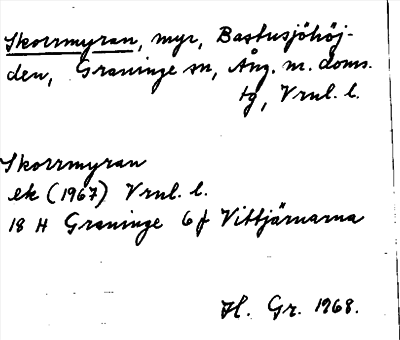 Skorrmyran, myr, Bastusjöhöj-
den, Graninge sn, Ång. m. doms.
tg, Vrnl. l.
Skorrmyran
ek (1967) Vrnl. l.
18 H Graninge 6 f Vittjärnarna
H. Gr. 1968.